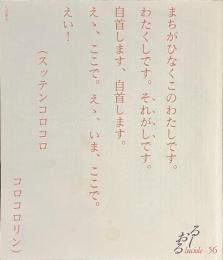 まちがひなくこのわたしです。
わたくしです。それがしです。
自首します、自首します。
えゝ、ここで。えゝ、いま、ここで。
えい！
(スッテンコロコロ
コロコロリン)
るしおる
luciole 56